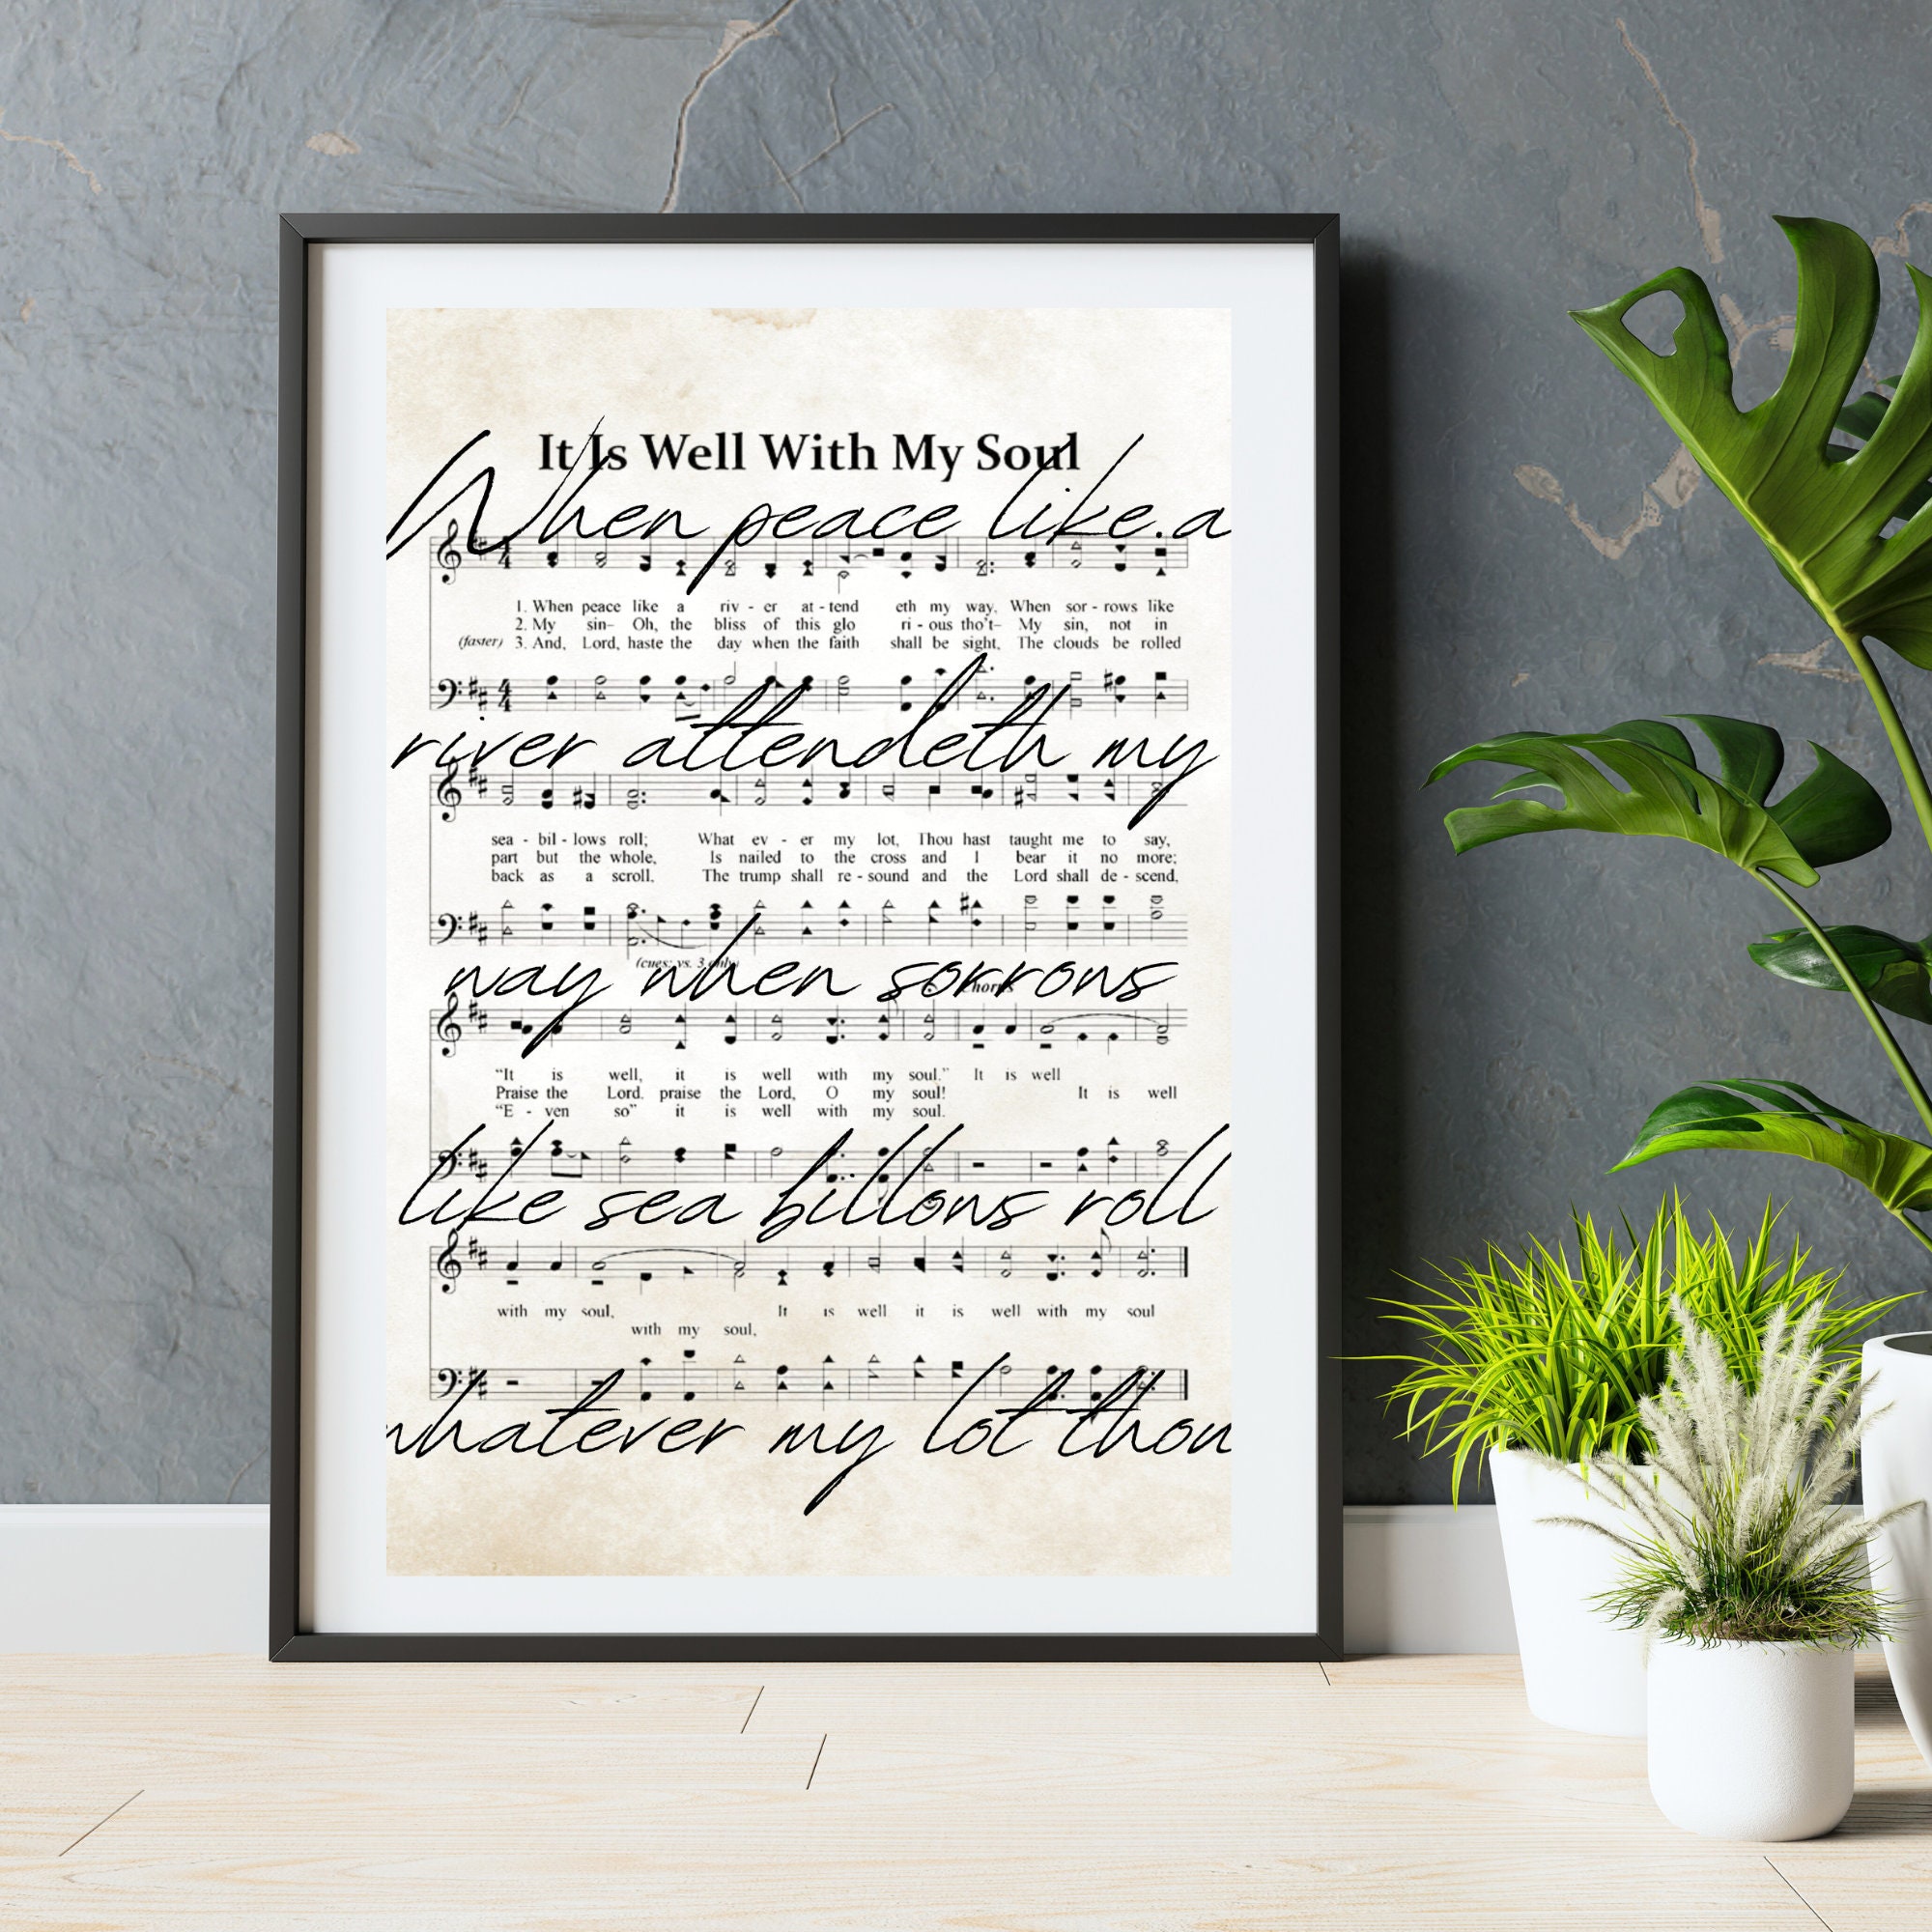 It Is Well With My Soul
When peace like a
1. When peace like a riv - er at - tend eth my way, When sor - rows like
2. My sin– Oh, the bliss of this glo ri - ous tho't– My sin, not in
(faster) 3. And, Lord, haste the day when the faith shall be sight, The clouds be rolled
river attendeth my
sea - bil - lows roll; What ev - er my lot, Thou hast taught me to say,
part but the whole, Is nailed to the cross and I bear it no more;
back as a scroll. The trump shall re - sound and the Lord shall de - scend,
(cues: vs. 3 only)
way when sorrows
"It is well, it is well with my soul." It is well
Praise the Lord. praise the Lord, O my soul! It is well
"E - ven so" it is well with my soul.
like sea billows roll
with my soul, It is well it is well with my soul
with my soul,
whatever my lot thou